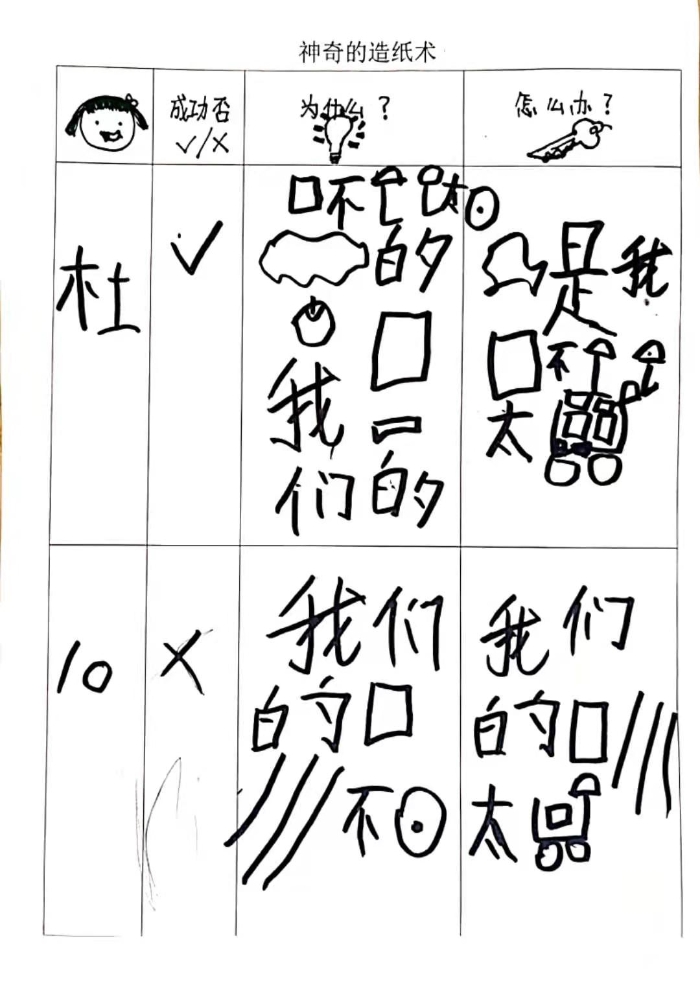 神奇的造纸术
成功否 为什么？ 怎么办？
√/×
杜 √
不 太
的
我
们的
是我
不
太
10 ×
我们
的
不
我们
的
太